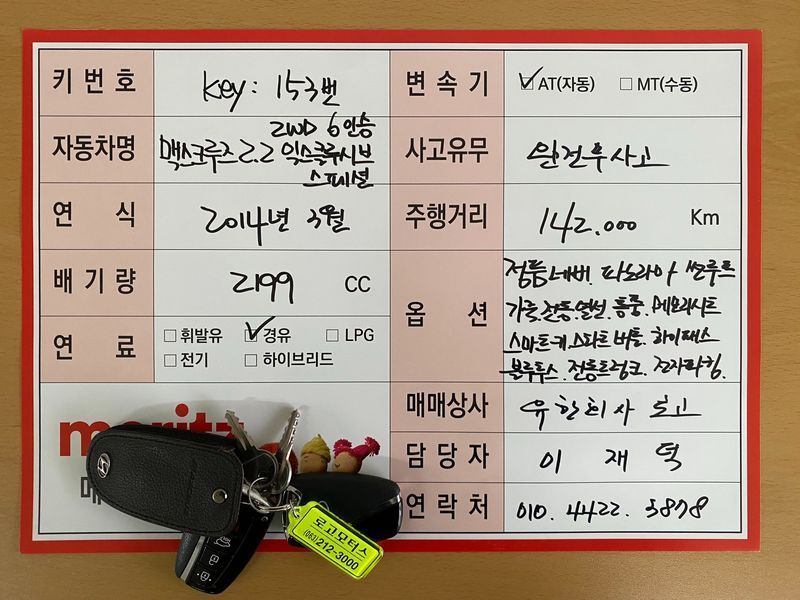 키 번 호
Key: 153번
변 속 기
AT(자동) MT(수동)
자동차명
2WD 6인승
맥스크루즈 2.2 익스클루시브
스페셜
사고유무
완전무사고
연 식
2014년 3월
주행거리
142.000 Km
배 기 량
2199 CC
옵 션
정품네비. 파노라마 썬루프
가죽.전동.열선.통풍.메모리시트
스마트키.스타트버튼. 하이패스
블루투스. 전동트렁크. 전자파킹.
연 료
휘발유 경유 LPG
전기 하이브리드
매매상사
유한회사 로고
담 당 자
이 재 덕
연 락 처
010. 4422. 5878
moritz
매
로고모터스
(063)212-3000